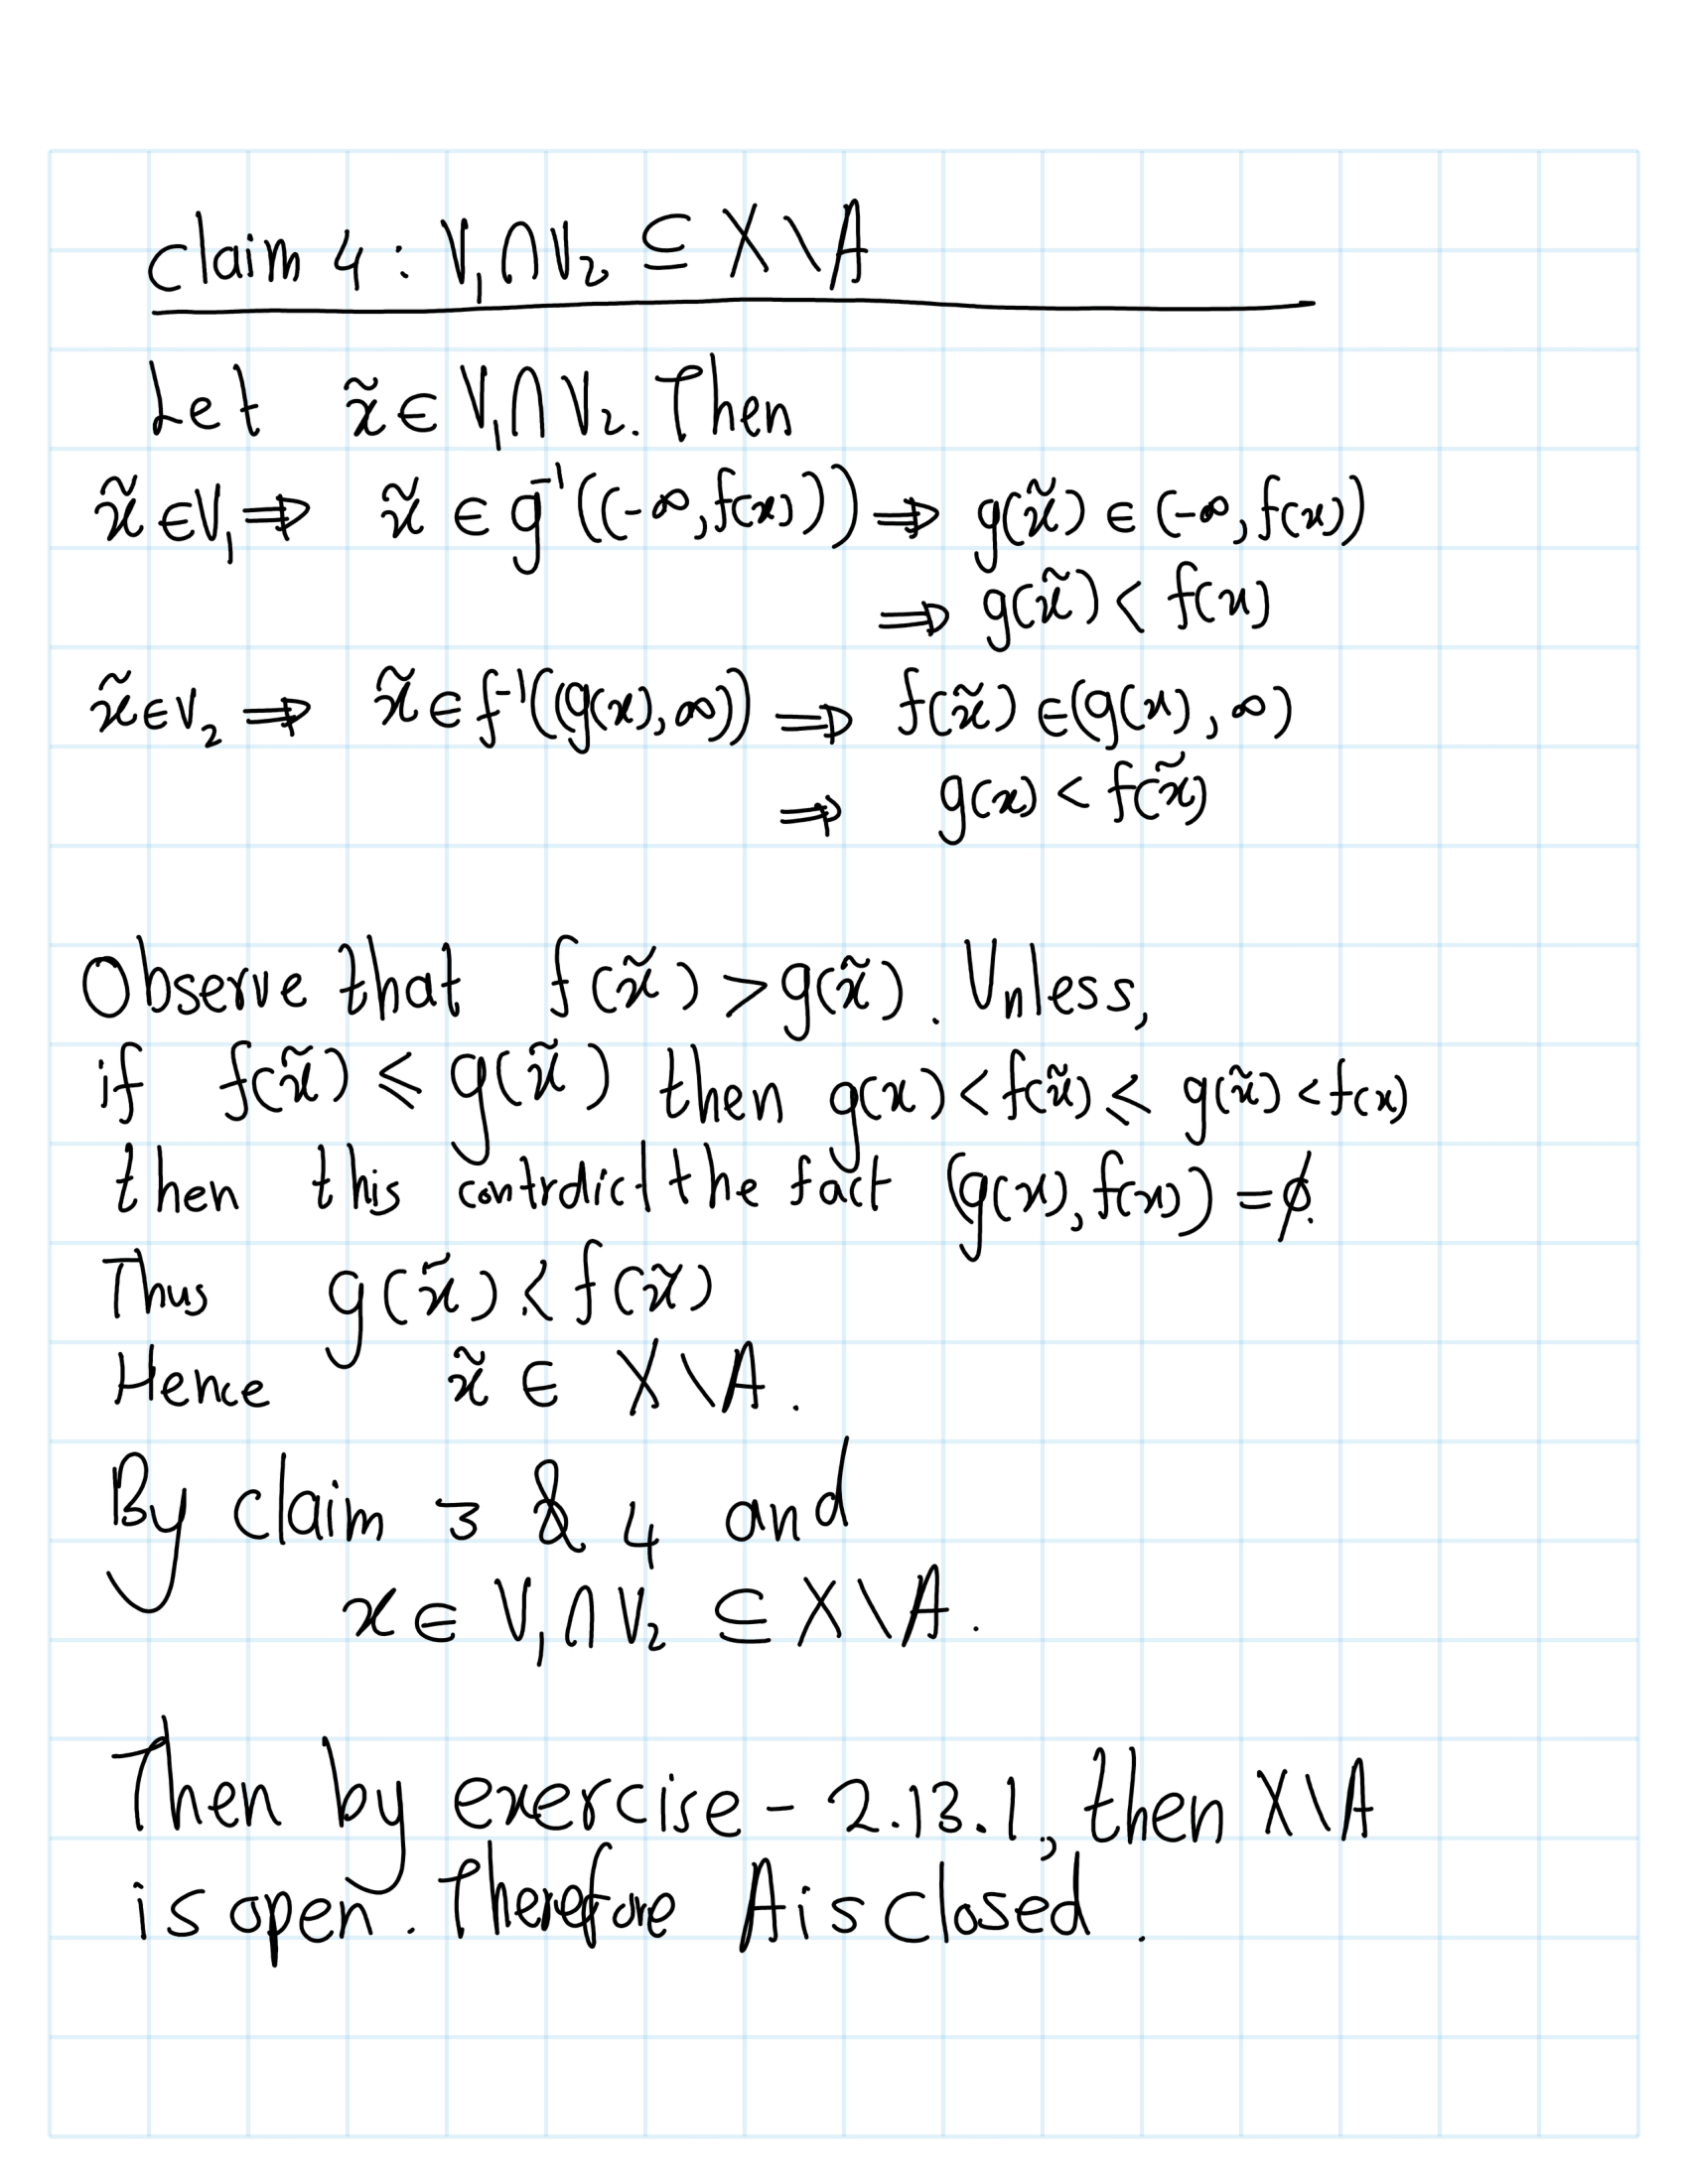 claim 4 : V₁∩V₂ ⊆ X\A
Let x̃ ∈ V₁∩V₂. Then
x̃ ∈ V₁ ⇒ x̃ ∈ g⁻¹((-∞, f(x))) ⇒ g(x̃) ∈ (-∞, f(x))
⇒ g(x̃) < f(x)
x̃ ∈ V₂ ⇒ x̃ ∈ f⁻¹((g(x), ∞)) ⇒ f(x̃) ∈ (g(x), ∞)
⇒ g(x) < f(x̃)
Observe that f(x̃) > g(x̃). Unless,
if f(x̃) ≤ g(x̃) then g(x) < f(x̃) ≤ g(x̃) < f(x)
then this contrdict the fact (g(x), f(x)) = ∅.
Thus g(x̃) < f(x̃)
Hence x̃ ∈ X\A.
By claim 3 & 4 and
x ∈ V₁∩V₂ ⊆ X\A.
Then by exercise - 2.13.1, then X\A
is open. Therefore A is closed.